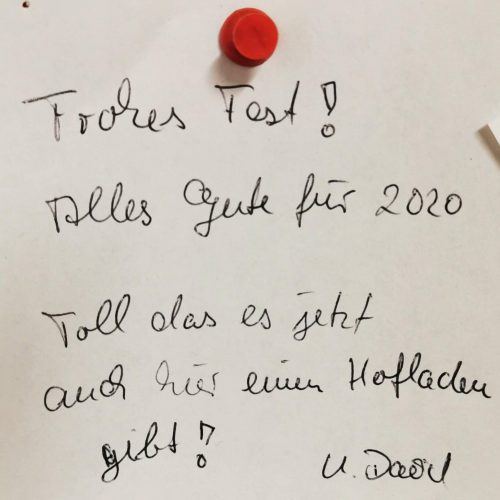 Frohes Fest!
Alles Gute für 2020
Toll das es jetzt
auch hier einen Hofladen
gibt!
U.